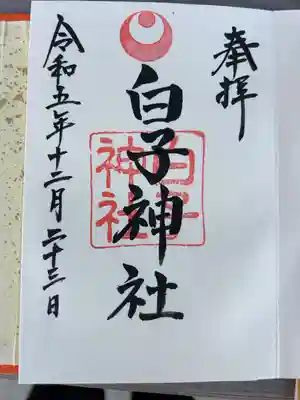 奉拝
白子神社
白子神社
令和五年十二月二十三日